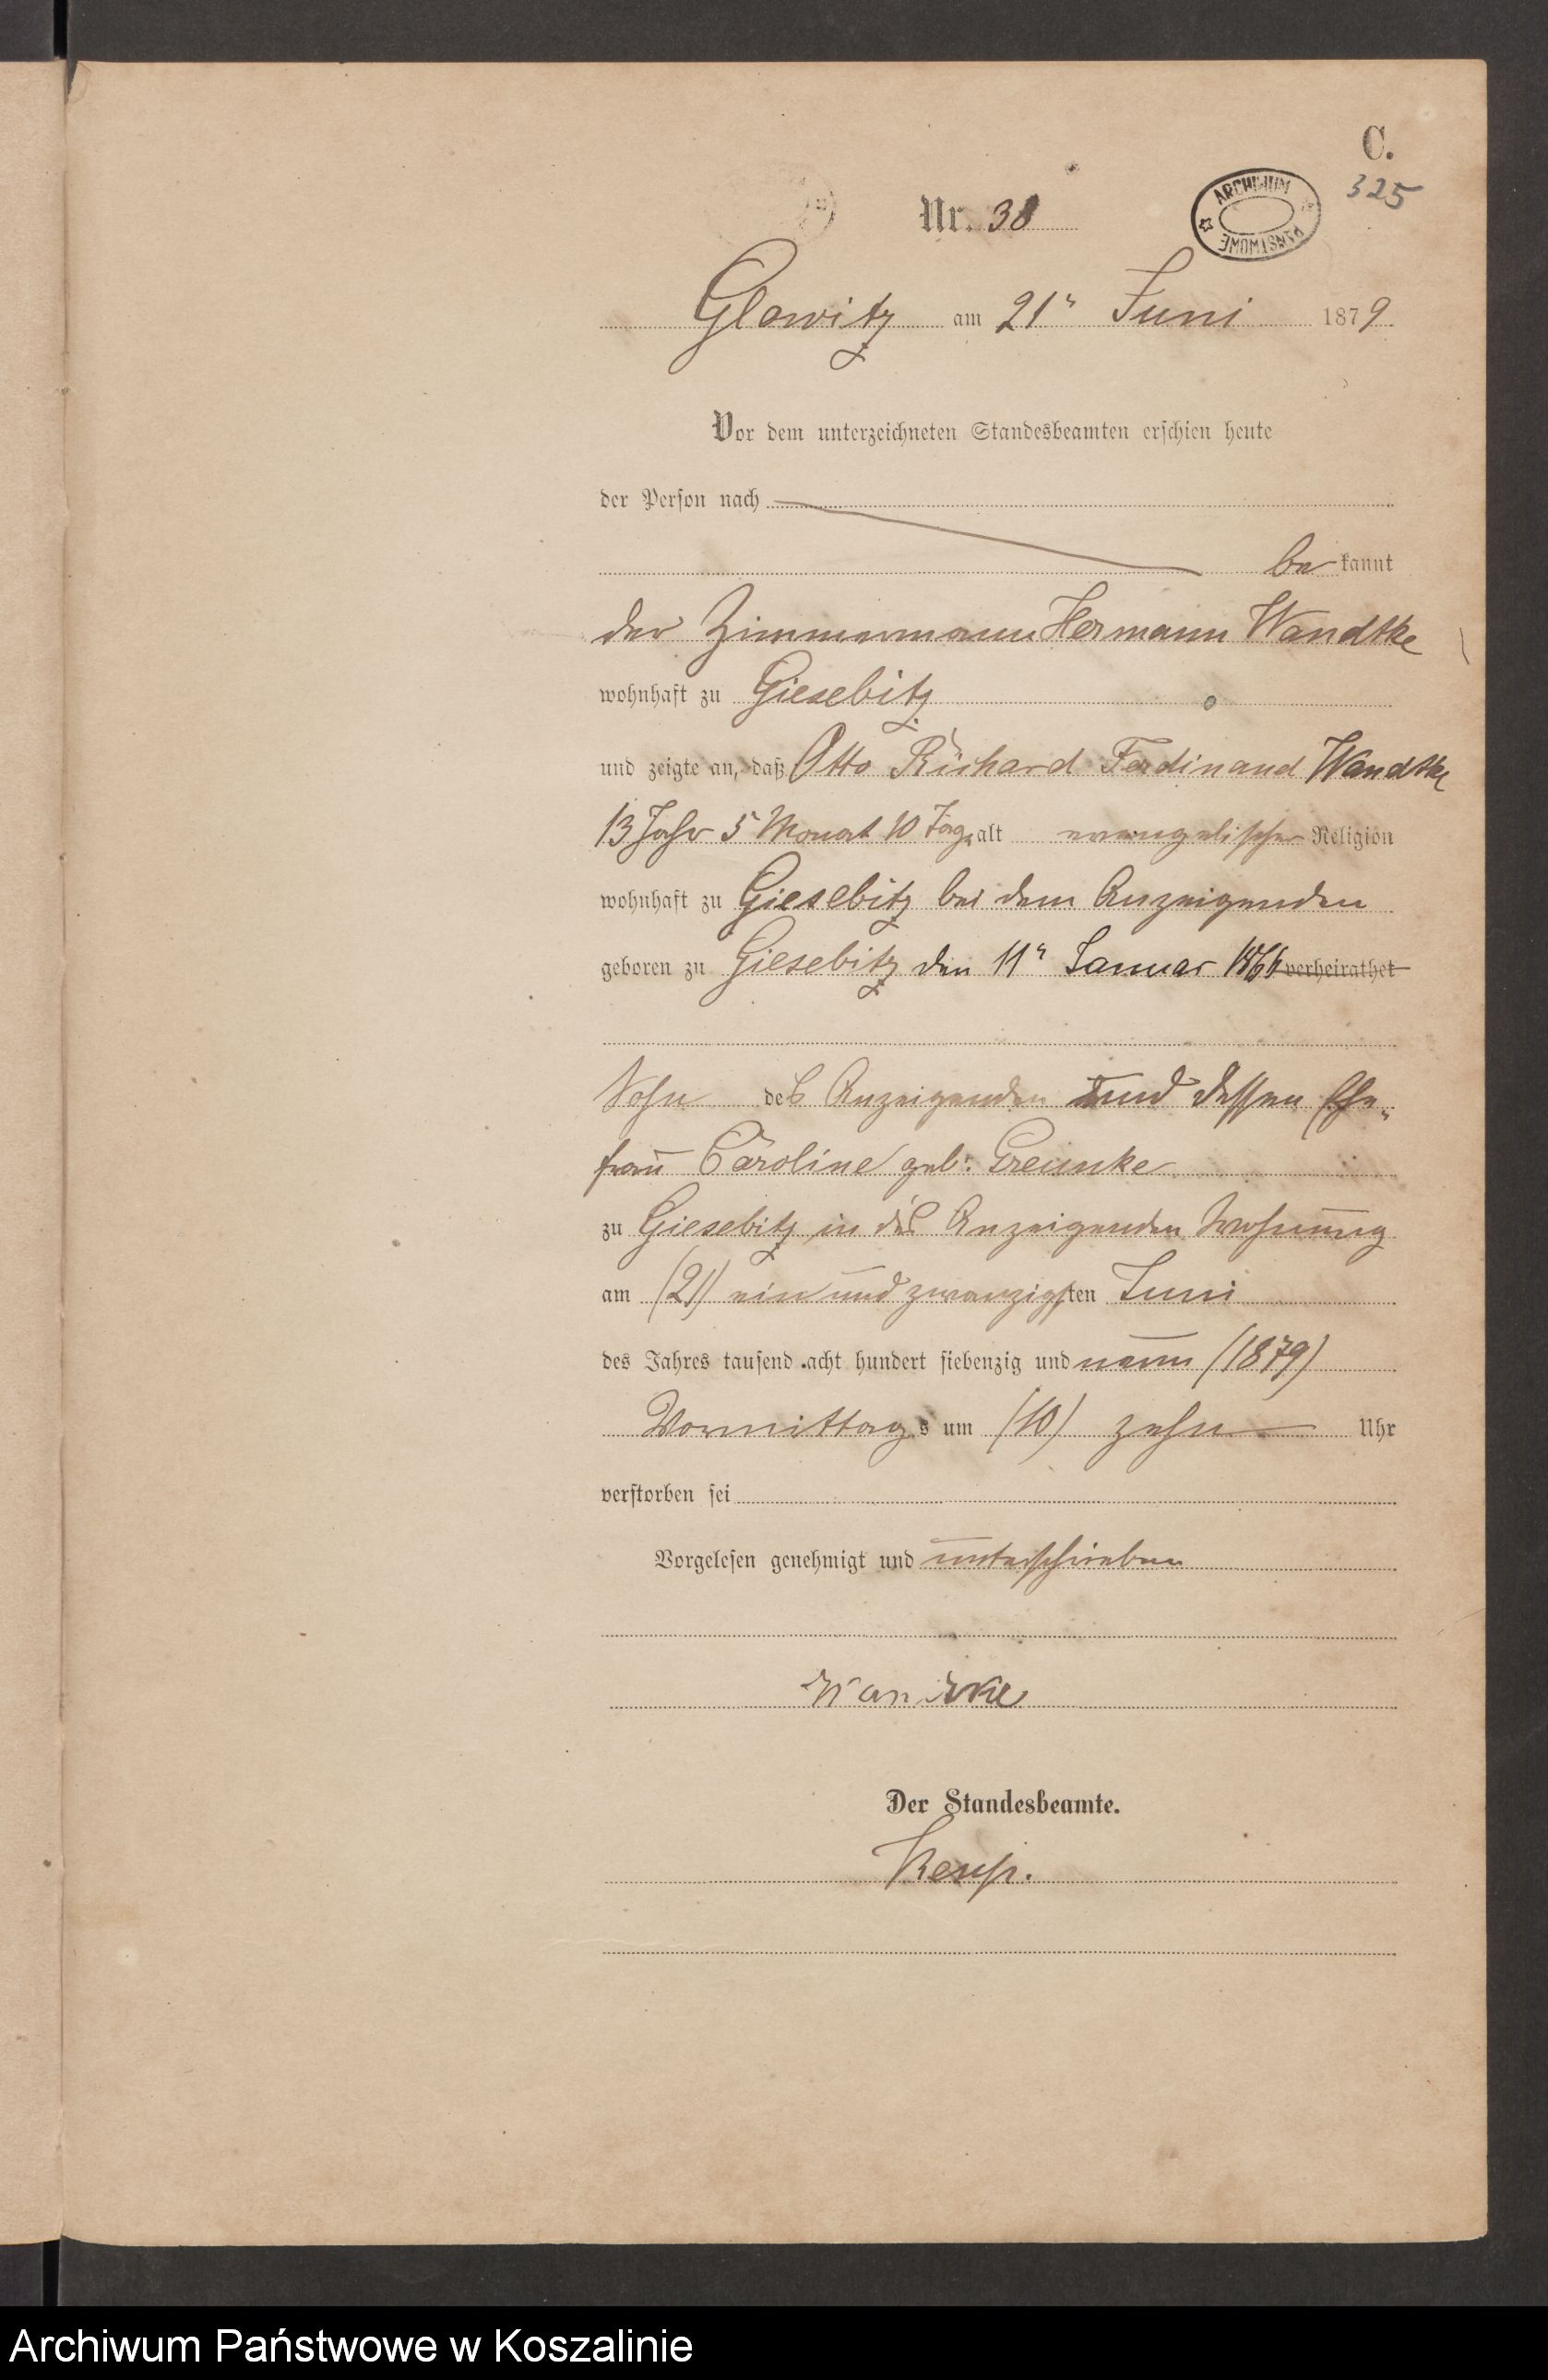 C.
325
ARCHIWUM PAŃSTWOWE
Nr. 38
Glowitz am 21ⁿ Juni 1879
Vor dem unterzeichneten Standesbeamten erschien heute
der Person nach
be kannt
der Zimmermann Hermann Wandtke
wohnhaft zu Giesebitz
und zeigte an, daß Otto Richard Ferdinand Wandtke
13 Jahr 5 Monat 10 Tage alt evangelischer Religion
wohnhaft zu Giesebitz bei dem Anzeigenden
geboren zu Giesebitz den 11ⁿ Januar 1866 verheirathet
Sohn des Anzeigenden und dessen Ehe-
frau Caroline geb: Greunke
zu Giesebitz in des Anzeigenden Wohnung
am (21) ein und zwanzigsten Juni
des Jahres tausend acht hundert siebenzig und neun (1879)
Vormittags um (10) zehn Uhr
verstorben sei
Vorgelesen genehmigt und unterschrieben
Wandtke
Der Standesbeamte.
Archiwum Państwowe w Koszalinie